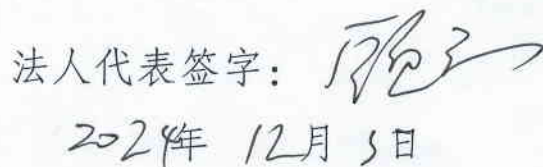 法人代表签字：
2024年 12月 3日